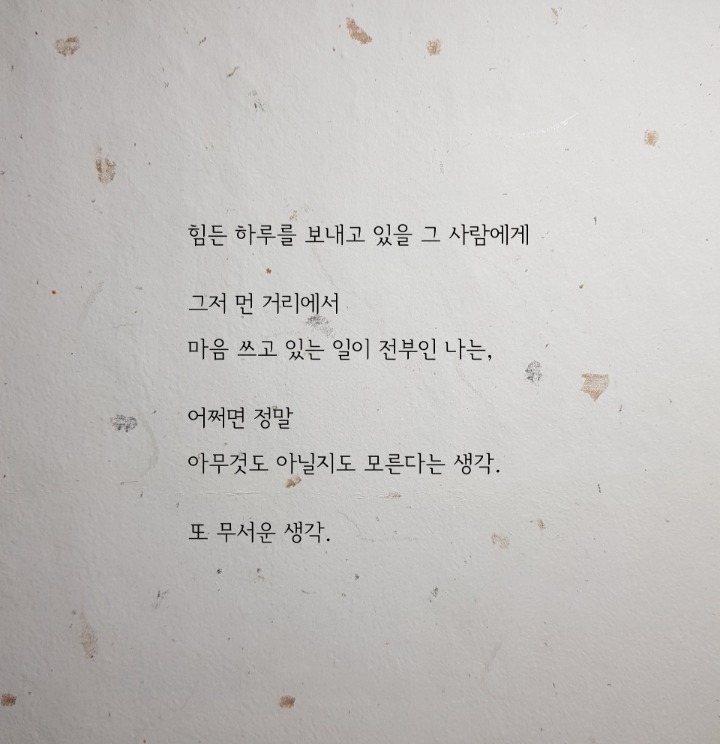 힘든 하루를 보내고 있을 그 사람에게
그저 먼 거리에서
마음 쓰고 있는 일이 전부인 나는,
어쩌면 정말
아무것도 아닐지도 모른다는 생각.
또 무서운 생각.